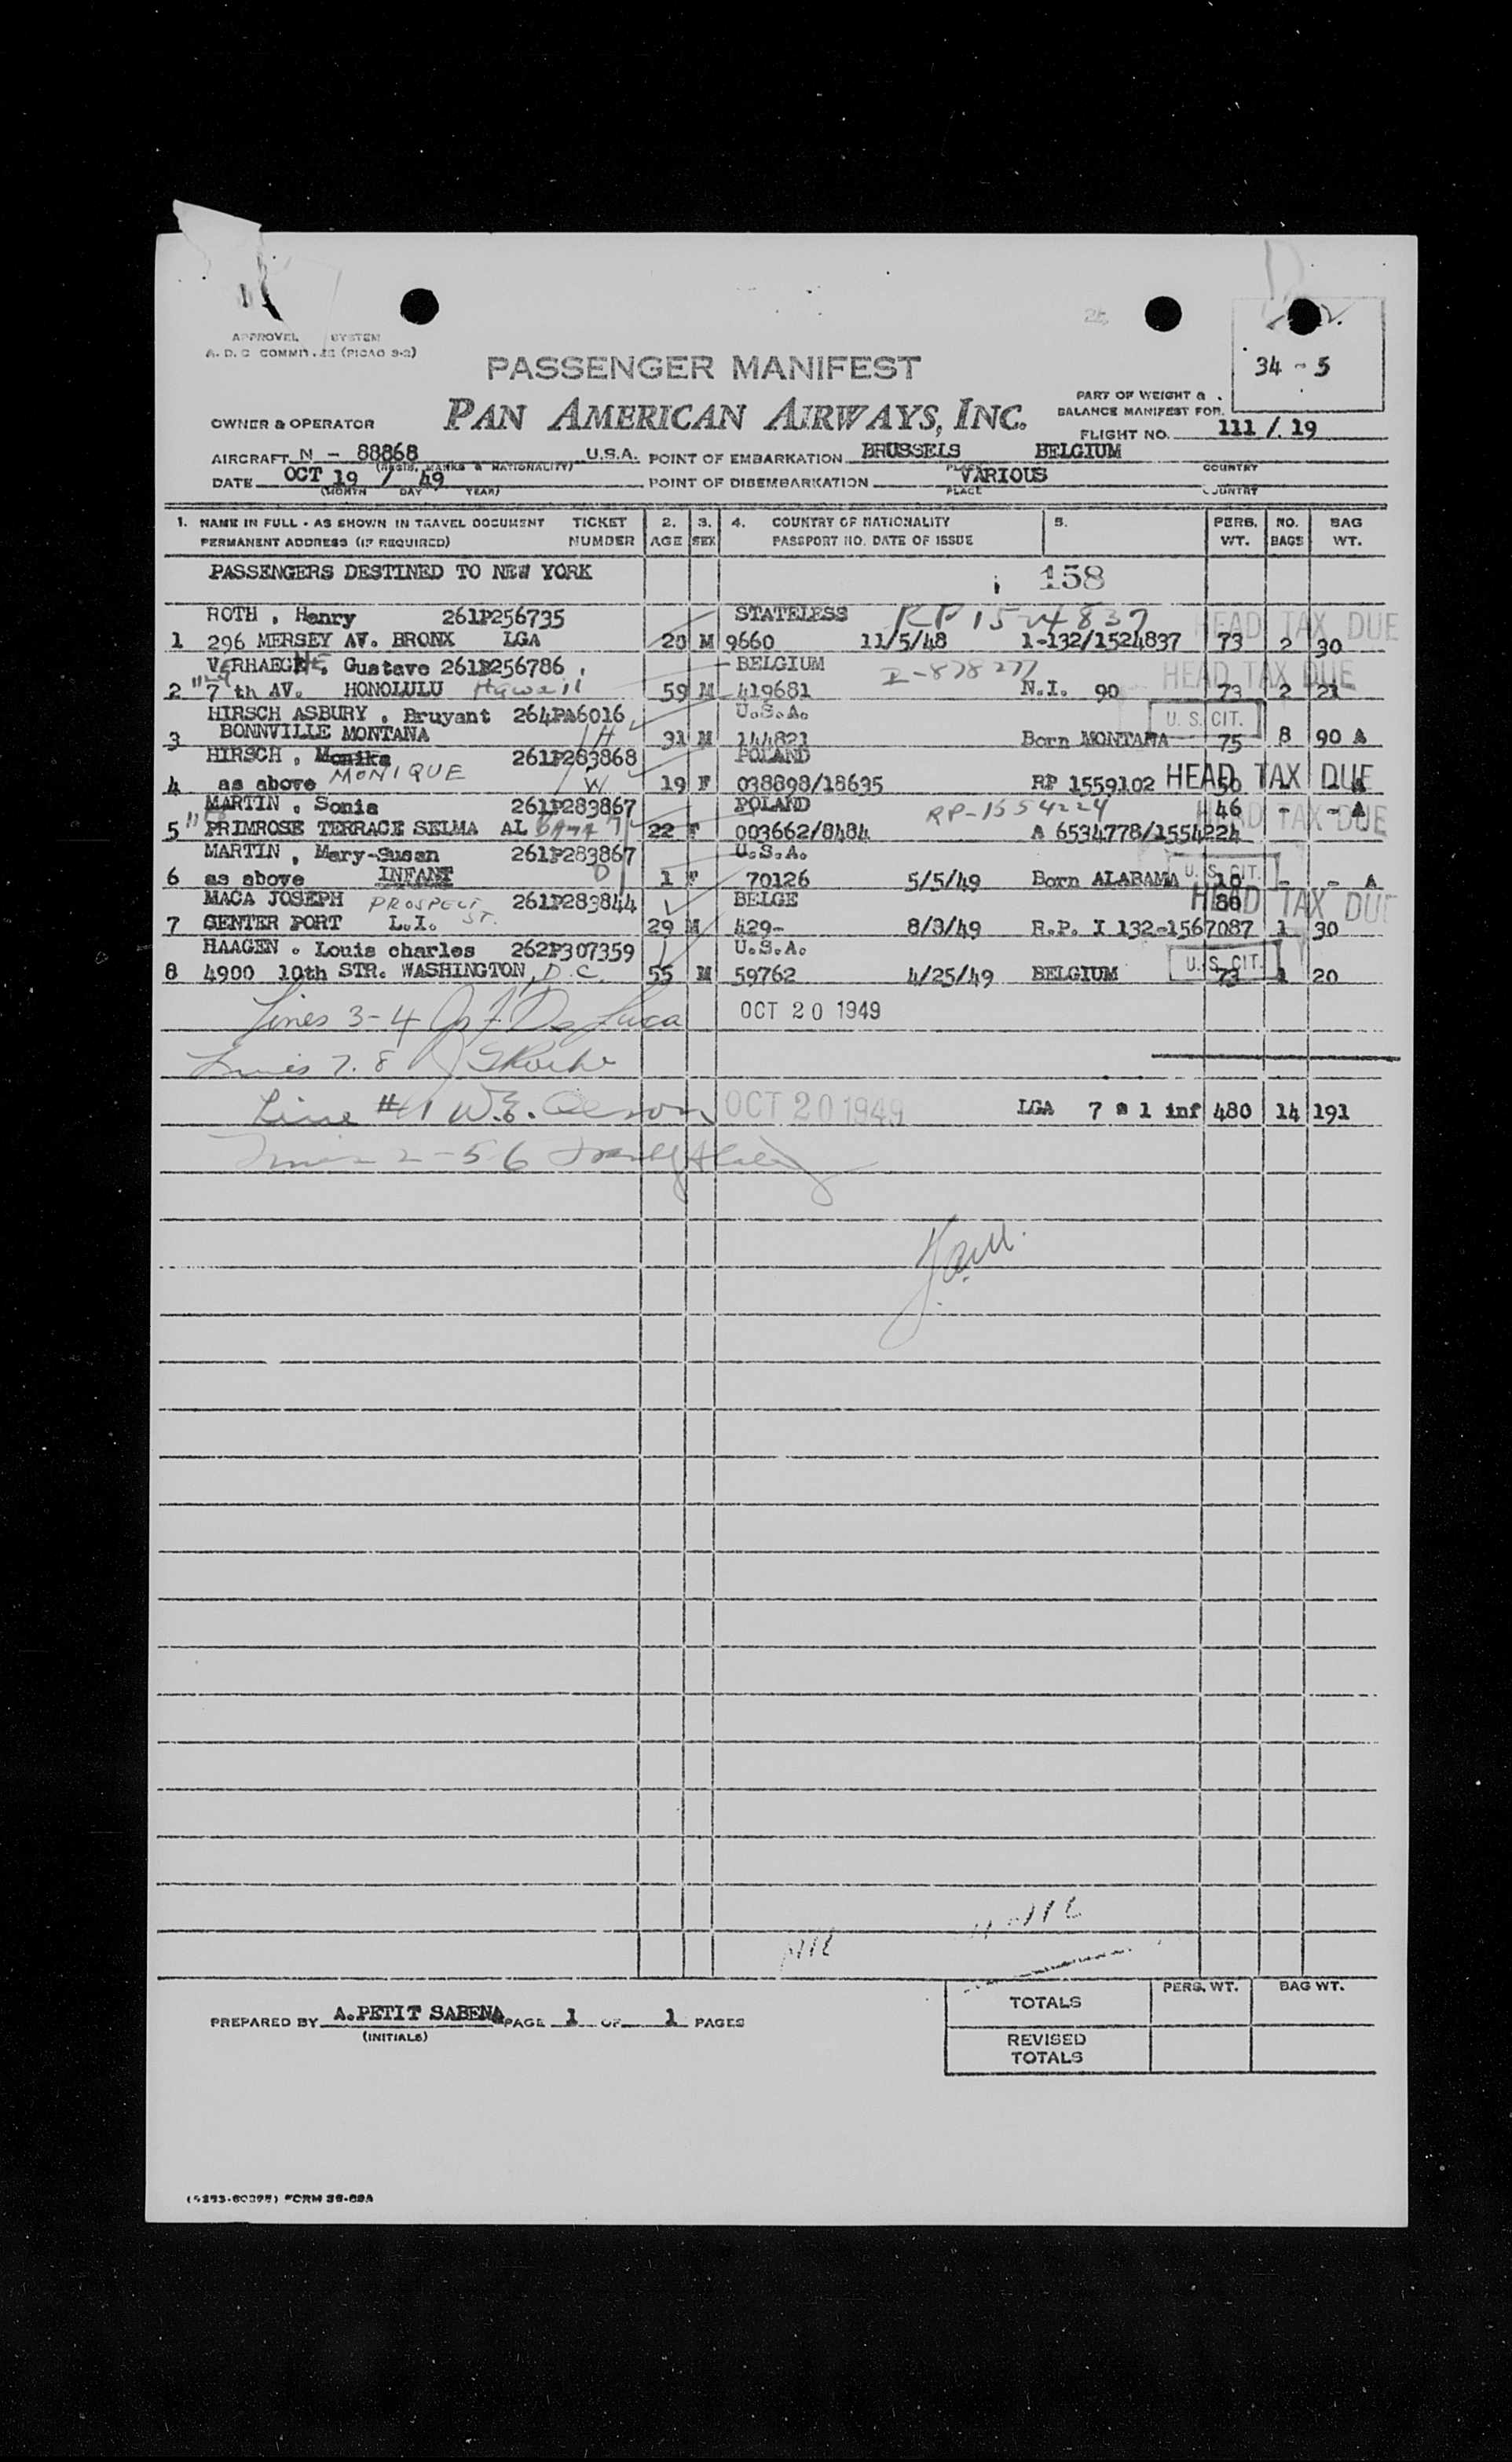 APPROVEL SYSTEM
A. D. C COMMITTEE (PICAO 3-2)
34 - 5
PASSENGER MANIFEST
PAN AMERICAN AIRWAYS, INC.
PART OF WEIGHT &
BALANCE MANIFEST FOR.
OWNER & OPERATOR
FLIGHT NO. 111 / 19
AIRCRAFT N - 88868 U.S.A. POINT OF EMBARKATION BRUSSELS BELGIUM
(REGIS. MARKS & NATIONALITY) PLACE COUNTRY
DATE OCT 19 / 49 POINT OF DISEMBARKATION VARIOUS
(MONTH DAY YEAR) PLACE COUNTRY
1. NAME IN FULL - AS SHOWN IN TRAVEL DOCUMENT TICKET 2. 3. 4. COUNTRY OF NATIONALITY 5. PERS. NO. BAG
PERMANENT ADDRESS (IF REQUIRED) NUMBER AGE SEX PASSPORT NO. DATE OF ISSUE WT. BAGS WT.
PASSENGERS DESTINED TO NEW YORK 158
ROTH , Henry 261P256735 STATELESS RP 1524837 HEAD TAX DUE
1 296 MERSEY AV. BRONX LGA 20 M 9660 11/5/48 1-132/1524837 73 2 30
VERHAEGHE, Gustave 261P256786 BELGIUM I-878277 HEAD TAX DUE
2 7 th AV. HONOLULU Hawaii 59 M 419681 N.I. 90 73 2 21
HIRSCH ASBURY , Bruyant 264PA6016 U.S.A. U. S. CIT.
3 BONNVILLE MONTANA H 31 M 144821 Born MONTANA 75 8 90 A
HIRSCH , Monika 261P283868 POLAND
4 as above MONIQUE W 19 F 038898/18635 RP 1559102 HEAD TAX DUE 50 - - A
MARTIN , Sonia 261P283867 POLAND RP-1554224 46 - - A HEAD TAX DUE
5 PRIMROSE TERRACE SELMA ALBAMA 22 F 003662/8484 A 6534778/1554224
MARTIN , Mary-Susan 261P283867 U.S.A. U. S. CIT.
6 as above INFANT 1 F 70126 5/5/49 Born ALABAMA 10 - - A
MACA JOSEPH PROSPECT ST. 261P283844 BELGE 80 HEAD TAX DUE
7 CENTER PORT L.I. 29 M 429- 8/8/49 R.P. I 132-1567087 1 30
HAAGEN . Louis charles 262P307359 U.S.A. U. S. CIT.
8 4900 10th STR. WASHINGTON, D.C. 55 M 59762 4/25/49 BELGIUM 73 1 20
Lines 3-4 OCT 20 1949
Lines 7. 8
Line #1 OCT 20 1949 LGA 7 a 1 inf 480 14 191
Lines 2-5 6
NIL
NIL
TOTALS PERS. WT. BAG WT.
PREPARED BY A.PETIT SABENA PAGE 1 OF 1 PAGES
(INITIALS)
REVISED
TOTALS
FORM 36-69A